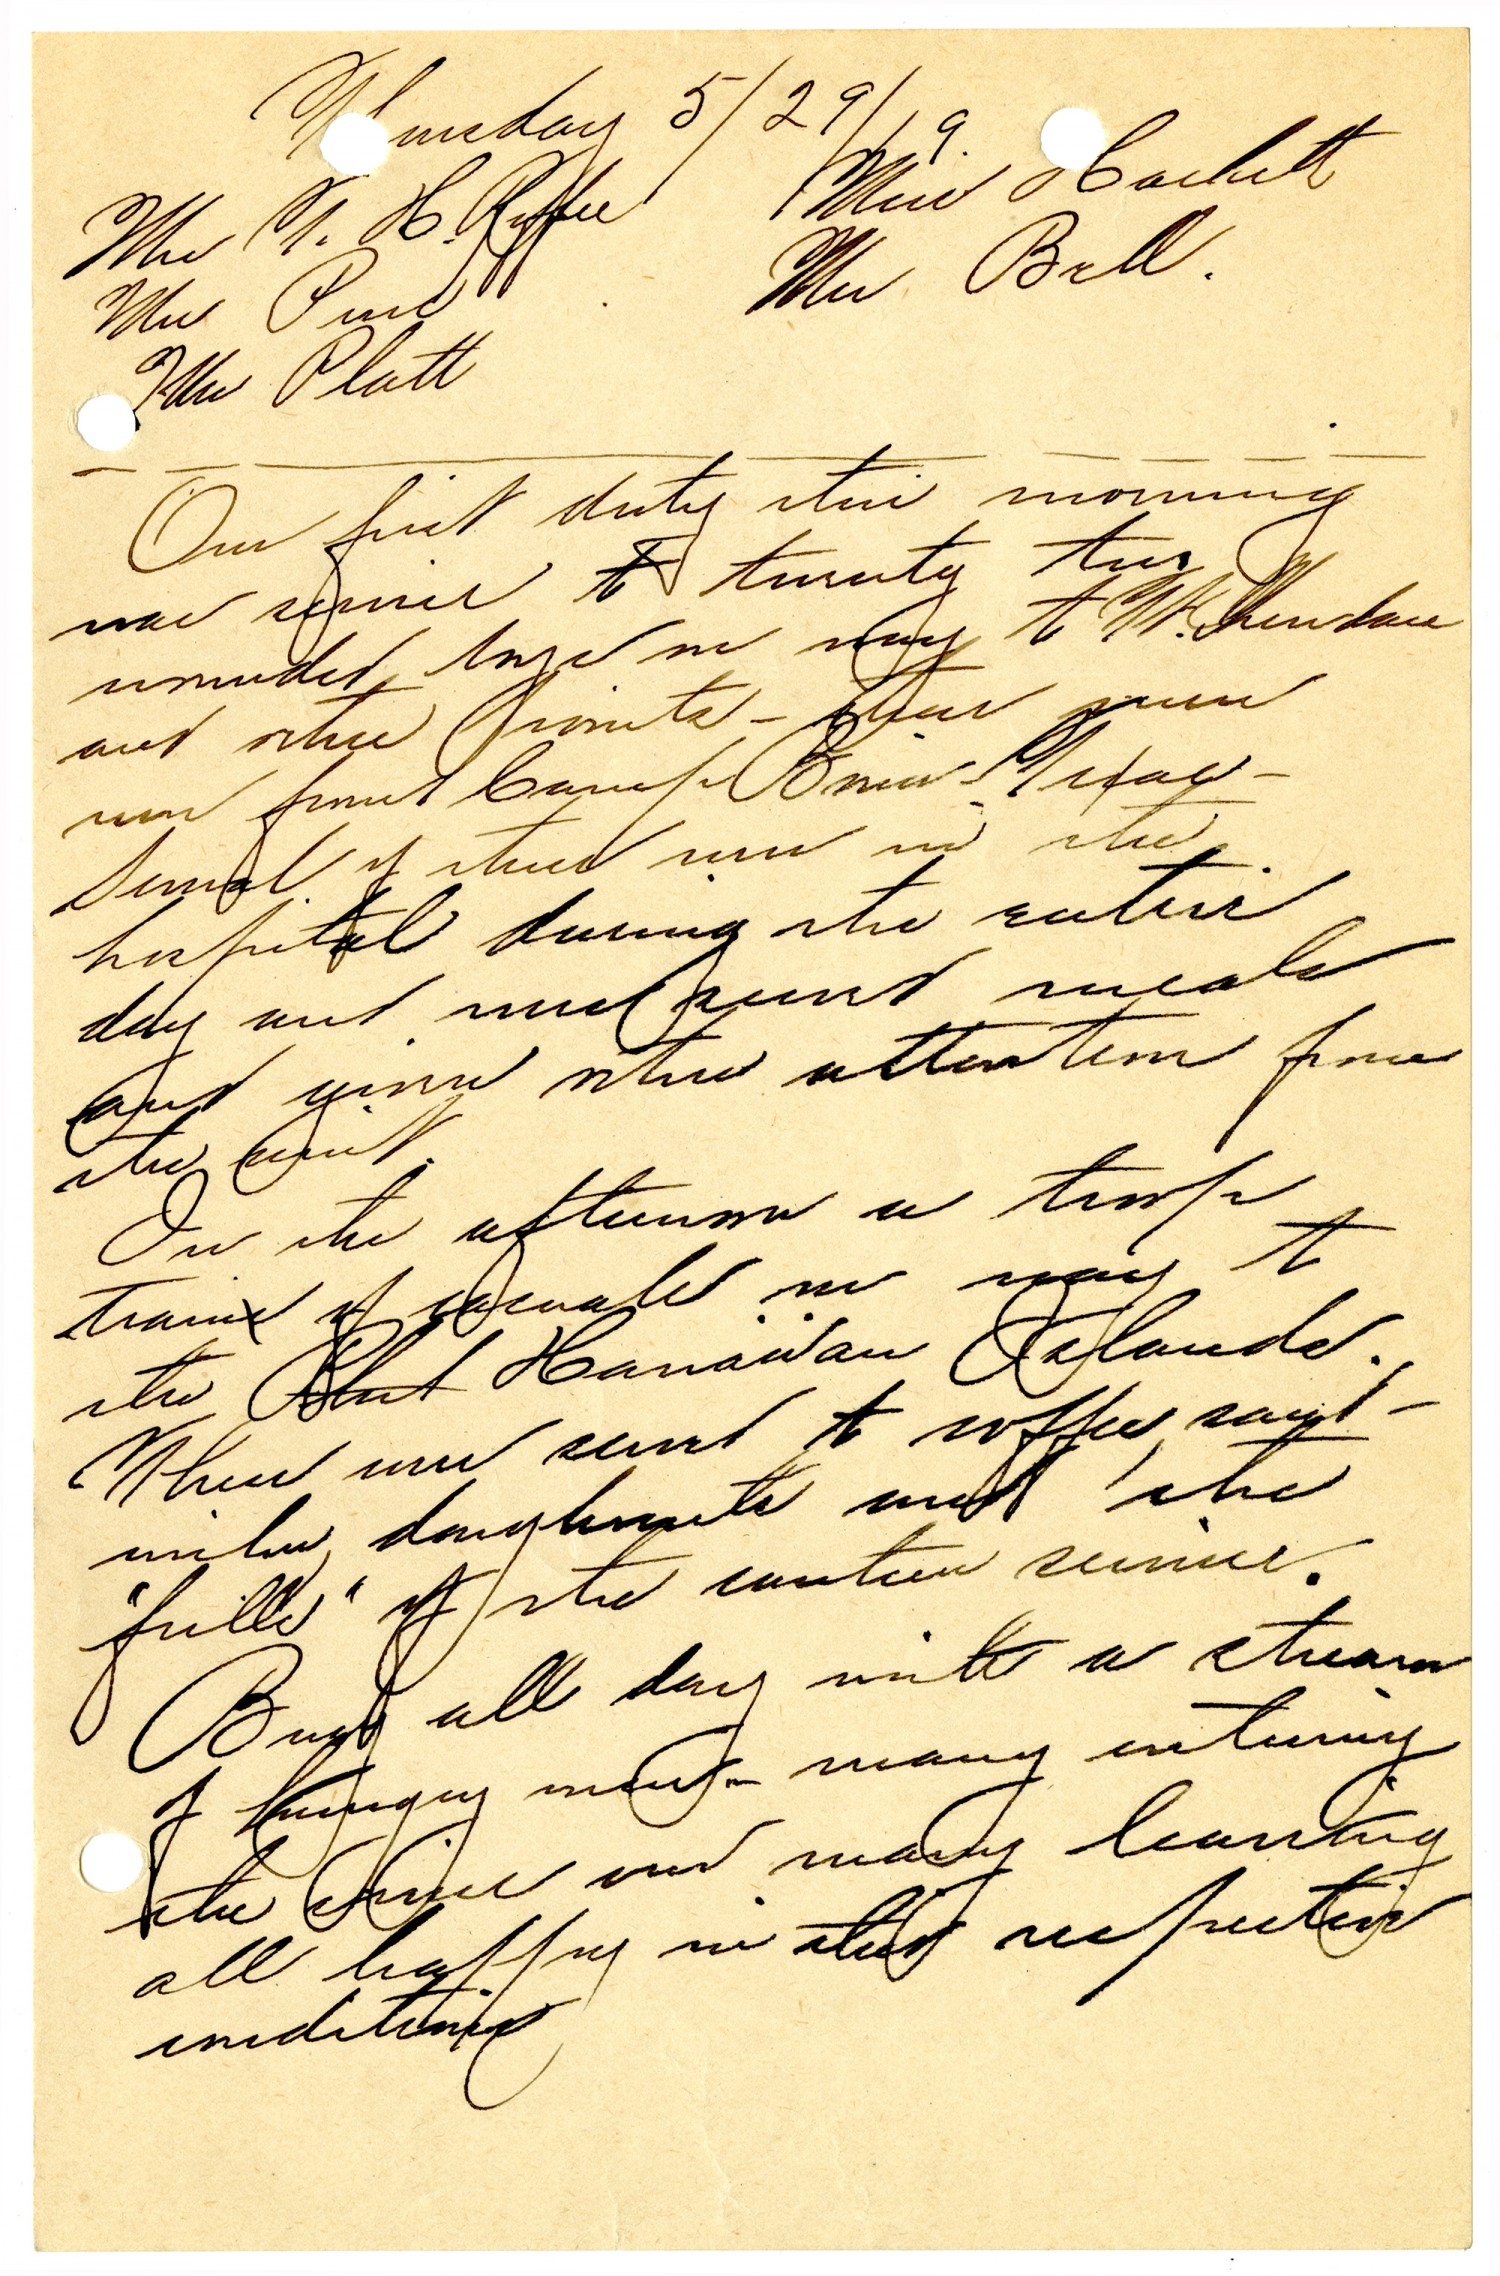 Thursday 5/29/19.
Mrs T. H. Pyfer
Miss Hackett
Mrs
Mrs Bell.
Mrs Platt
Our first duty this morning
was service to twenty two
wounded boys on way to Ft. Sheridan
and other points - these were
men from Camp Bowie - Texas -
Several of these were in the
hospital during the entire
day and were served meals
and given other attention from
the unit.
In the afternoon a troop
train of casuals on way to
the Hawaiian Islands.
These were served to coffee, sand-
wiches, doughnuts and the
"frills" of the canteen service.
Busy all day with a stream
of hungry men - many entering
the service and many leaving
all happy in their respective
conditions